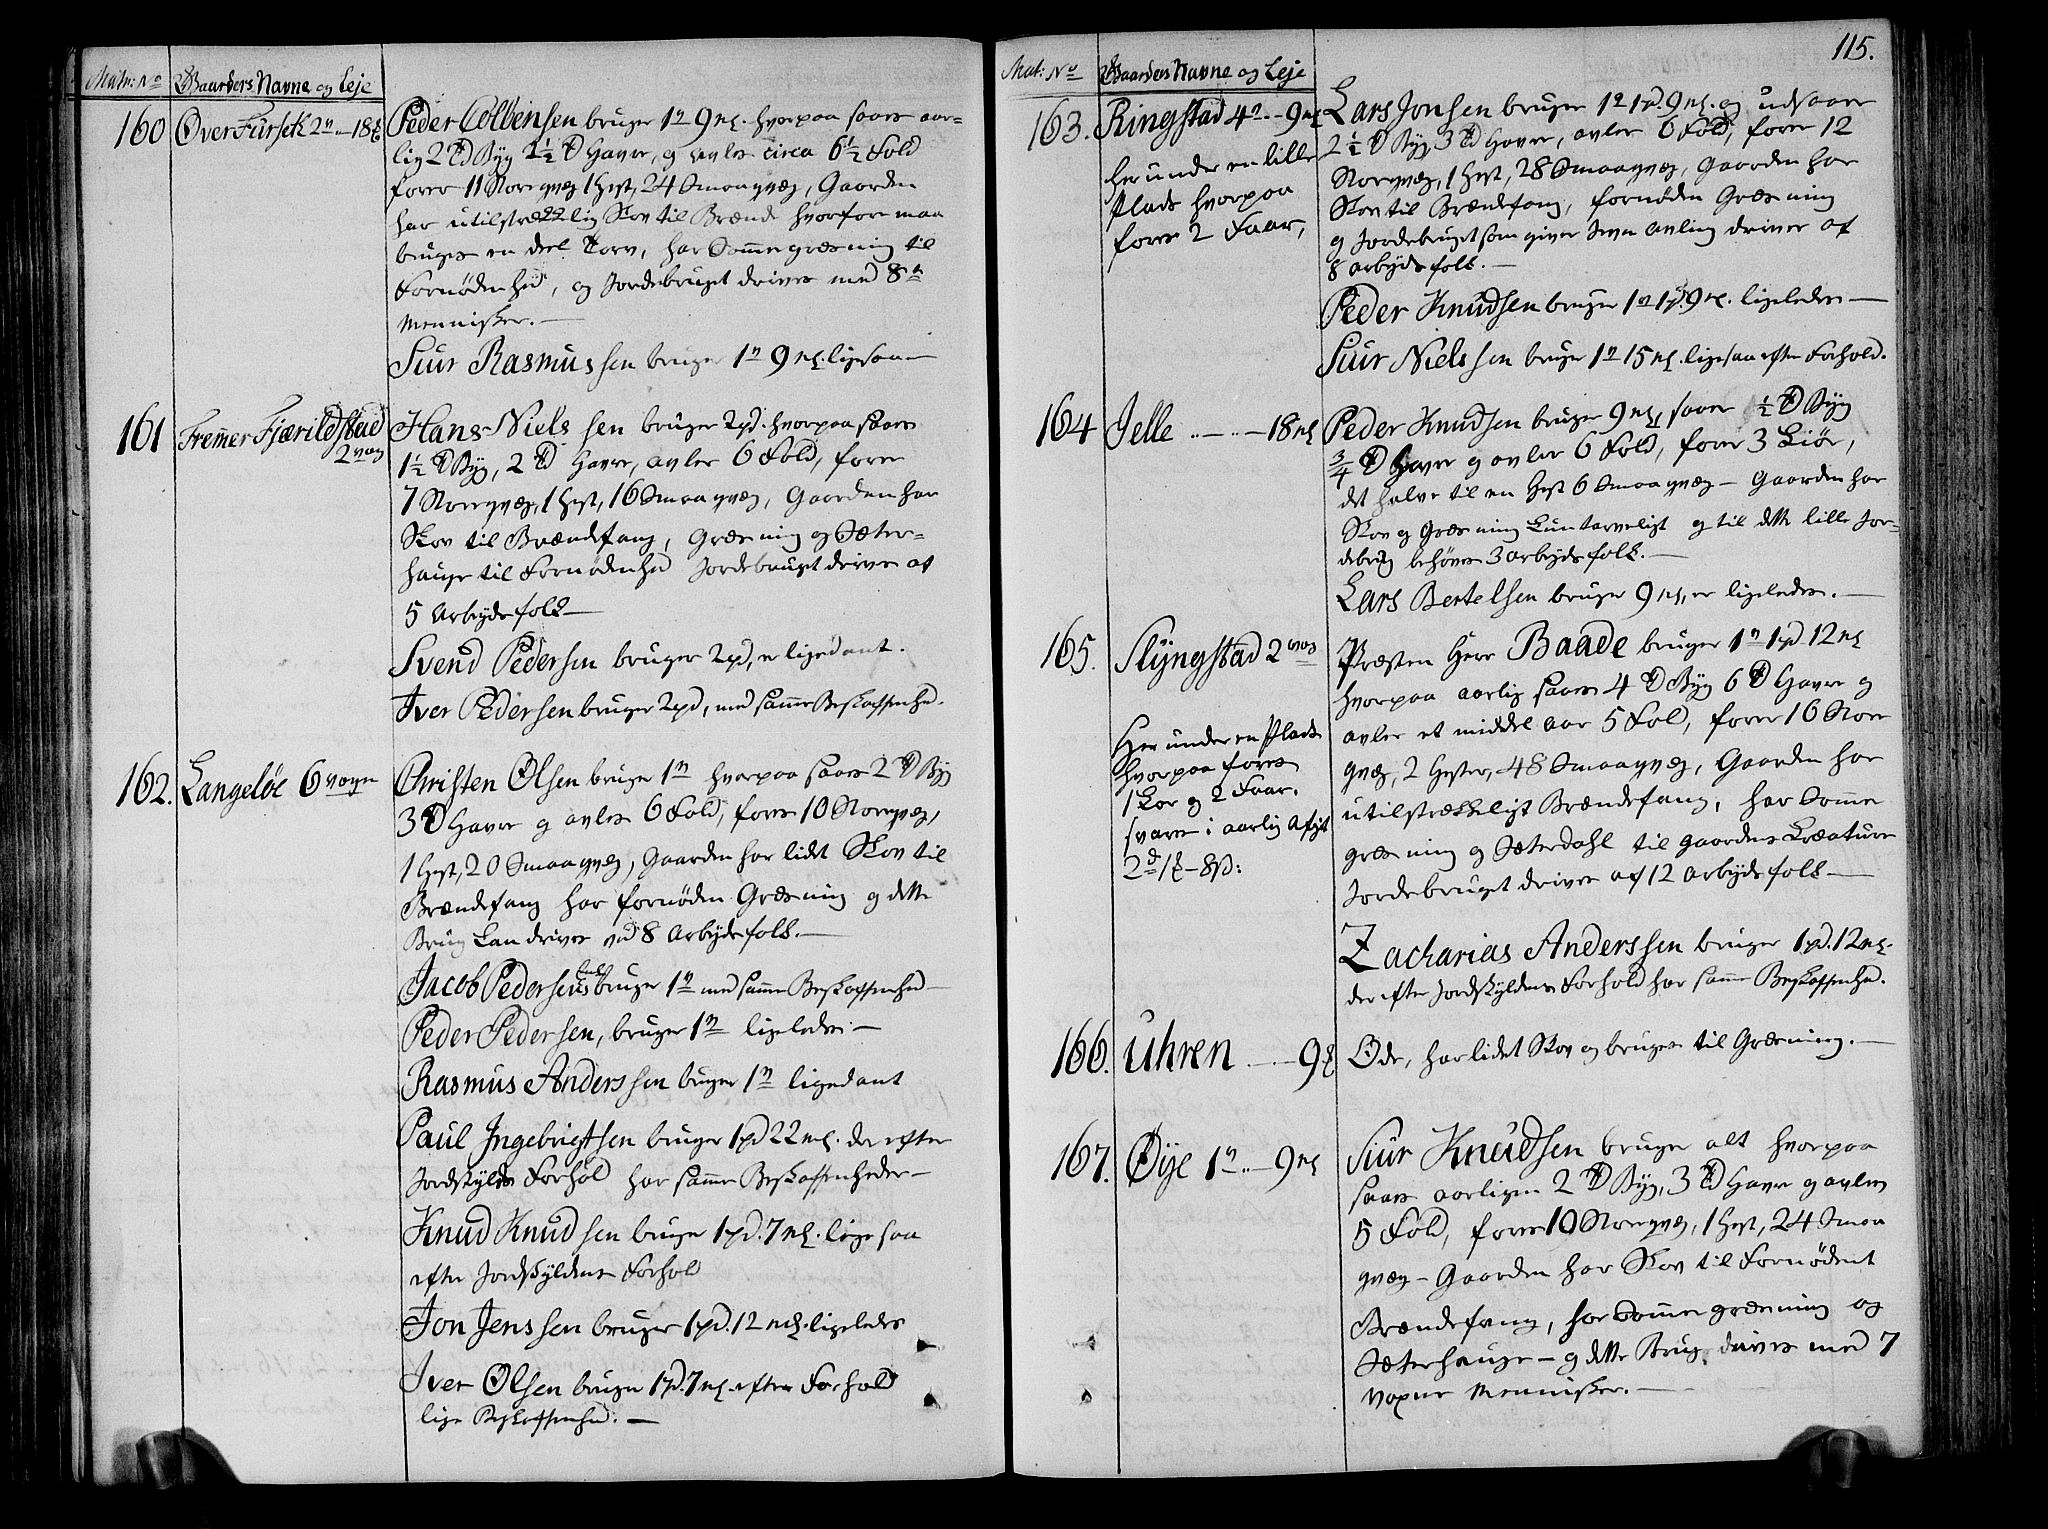 Matr: No Gaarders Navne og Leje
160 Øver Fürsek 2 v. — 18
Peder Colbensen bruger 1 v 9 mk. hvorpaa saaes aar-
lig 2 Td Byg 2½ Td Havre, og avles circa 6½ Fold
fores 11 Storqvæg 1 Hest, 24 Smaaqvæg, Gaarden
har utilstrækkelig Skov til Brænde hvorfore maa
bruges en deel Torv, har Sommergræsning til
Fornødenhed, og Jordebruget drives med 8te
Mennisker. —
Siur Rasmussen bruger 1 v 9 mk. ligesaa —
161 Fremer Fjærildstad
2 vog
Hans Nielssen bruger 2 pd. hvorpaa saaes
1½ Td Byg, 2 Td Havre, avles 6 Fold, fores
7 Storqvæg, 1 Hest, 16 Smaaqvæg, Gaarden har
Skov til Brændefang, Græsning og Sæter-
hauge til Fornødenhed Jordebruget drives af
5 Arbejdsfolk —
Svend Pedersen bruger 2 pd, er ligedant.
Iver Pedersen bruger 2 pd, med samme Beskaffenhed.
162. Langeløe 6 voger
Christen Olsen bruger 1 v hvorpaa saaes 2 Td Byg
3 Td Havre og avles 6 Fold, fores 10 Storqvæg,
1 Hest, 20 Smaaqvæg, Gaarden har lidet Skov til
Brændefang har fornøden Græsning og dette
Brug kan drives ved 8 Arbejdsfolk. —
Jacob Pedersens bruger 1 v med samme Beskaffenhed —
Peder Pedersen, bruger 1 v ligeledes. —
Rasmus Anderssen bruger 1 v ligedant
Paul Ingebrigtsen bruger 1 pd 22 mk. der efter
Jordskylds Forhold har samme Beskaffenheder —
Knud Knudsen bruger 1 pd. 7 mk. lige saa
efter Jordskyldens Forhold
Jon Jenssen bruger 1 pd. 12 mk. ligeledes
Iver Olsen bruger 1 pd. 7 mk efter Forhold
lige Beskaffenhed: —
115.
Mat: No Gaarders Navne og Leje
163. Ringstad 4 v. — 9 mk
her under en lille
Plads hvorpaa
fores 2 Faar,
Lars Jonsen bruger 1 v 1 pd. 9 mk. og udsaaer
2½ Td Byg 3 Td Havre, avler 6 Fold, forer 12
Storqvæg, 1 Hest, 28 Smaaqvæg, Gaarden har
Skov til Brændefang, fornøden Græsning
og Jordebruget som giver Jevn avling drives af
8 arbejdsfolk. —
Peder Knudsen bruger 1 v 1 pd. 9 mk. ligeledes —
Siur Nielssen bruger 1 v 15 mk. ligesaa efter Forhold.
164 Jelle — 18 mk
Peder Knudsen bruger 9 mk, saaer ½ Td Byg
¾ Td Havre og avler 6 Fold, forer 3 Kiør,
det halve til en Hest 6 Smaaqvæg — Gaarden har
Skov og Græsning kun tarveligt og til dette lille Jor-
debrug behøves 3 arbejdsfolk. —
Lars Bertelsen bruger 9 mk, er ligeledes. —
165. Slÿngstad 2 vog
Her under en Plads
hvorpaa fores
1 Koe og 2 Faar.
svarer i aarlig Afgit
2 d 1 — 8 ß:
Præsten Herr Baade bruger 1 v 1 pd 12 mk
hvorpaa aarlig saaes 4 Td Byg 6 Td Havre og
avler et middel aar 5 Fol, forer 16 Stor
qvæg, 2 Hester, 48 Smaaqvæg, Gaarden har
utilstrækkeligt Brændefang, har Somer
græsning og Sæterdahl til gaardens Kreature
Jordebruget drives af 12 arbejdsfolk —
Zacharias Anderssen bruger 1 pd. 12 mk.
der efter Jordskyldens Forhold har samme Beskaffenhed.
166. Uhren — 9
Øde, har lidet Skov og bruges til Græsning. —
167. Øije 1 v. — 9 mk
Siur Knudsen bruger alt hvorpaa
saaes aarligen 2 Td Byg, 3 Td Havre og avles
5 Fold, fores 10 Storqvæg, 1 Hest, 24 Smaa
qvæg — Gaarden har Skov til Fornødent
Brændefang, har Sommergræsning og
Sæterhauge — og dette Brug drives med 7
voxne Mennisker. —